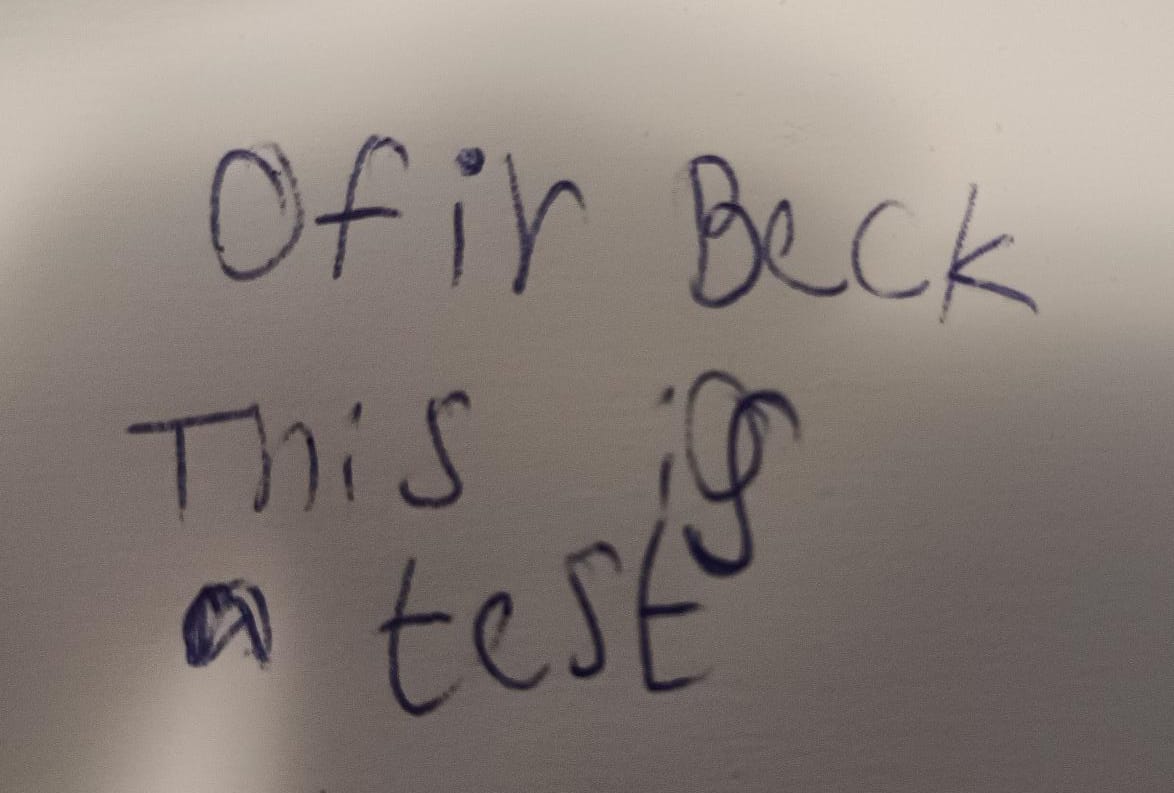 Ofir Beck
This is
a test